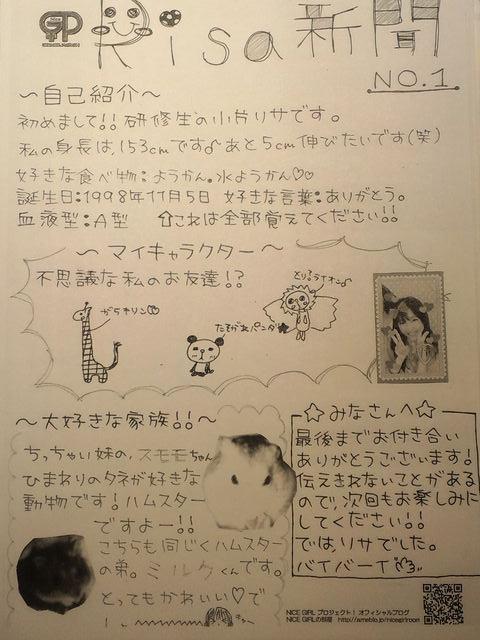 Risa新聞
NO.1
〜自己紹介〜
初めまして!! 研修生の小片リサです。
私の身長は、153cmです♂あと5cm伸びたいです(笑)
好きな食べ物:ようかん。水ようかん♡♡
誕生日:1998年11月5日 好きな言葉:ありがとう。
血液型:A型 ⇧これは全部覚えてください!!
〜マイキャラクター〜
不思議な私のお友達!?
がらキリン♡
たそがれパンダ
〜大好きな家族!!〜
ちっちゃい妹の、スモモちゃん
ひまわりのタネが好きな
動物です!ハムスター
ですよー!!
こちらも同じくハムスター
の弟。ミルクくんです。
とってもかわいい♡で
☆みなさんへ☆
最後までお付き合い
ありがとうございます!
伝えきれないことがある
ので、次回もお楽しみに
してください!!
では、リサでした。
バイバーイ
NICE GIRL プロジェクト! オフィシャルブログ
NICE GIRLの部屋 http://ameblo.jp/nicegirlroom